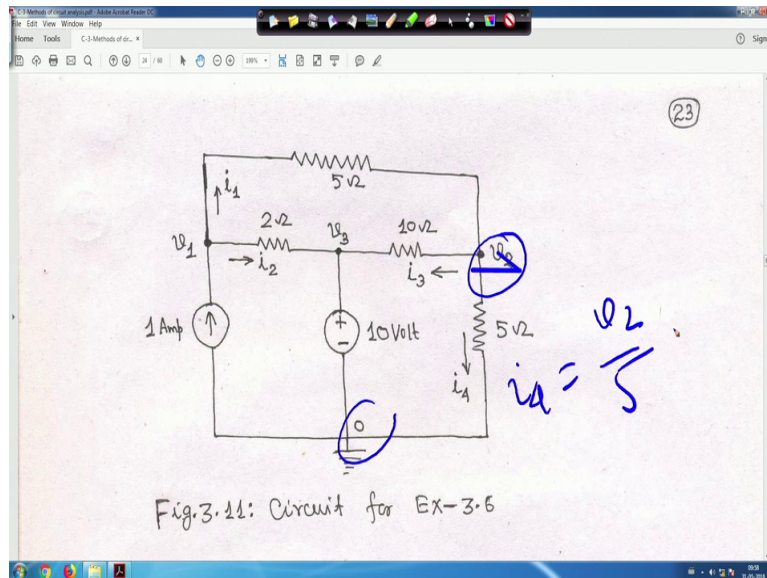 C-3-Methods of circuit analysis.pdf - Adobe Acrobat Reader DC
File Edit View Window Help
Home Tools C-3-Methods of cir... × Sign
24 / 60 199%
23
5Ω
i1
2Ω 10Ω
v1 v3 v2
i2 i3
1 Amp 10 Volt 5Ω
i4
i4 = v2 / 5
0
Fig.3.11: Circuit for Ex-3.6
09:58